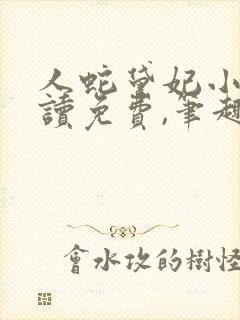 人蛇黛妃小
讀免費,筆趣
會水攻的樹怪